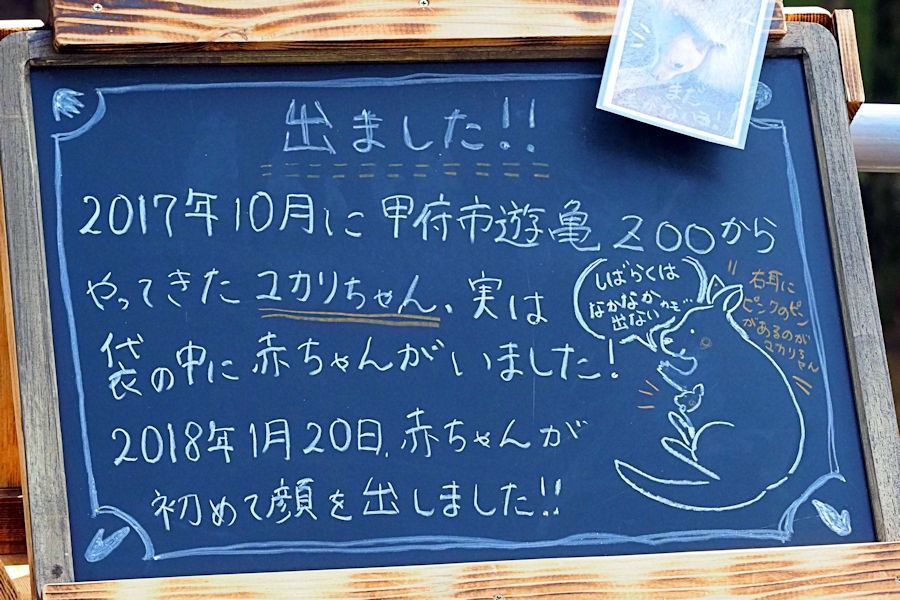 出ました!!
2017年10月に甲府市遊亀ZOOから
やってきたユカリちゃん、実は
袋の中に赤ちゃんがいました!
2018年1月20日、赤ちゃんが
初めて顔を出しました!!
しばらくは
なかなか
出ない
かも…
右耳に
ピンクのピン
があるのが
ユカリちゃん
まだ